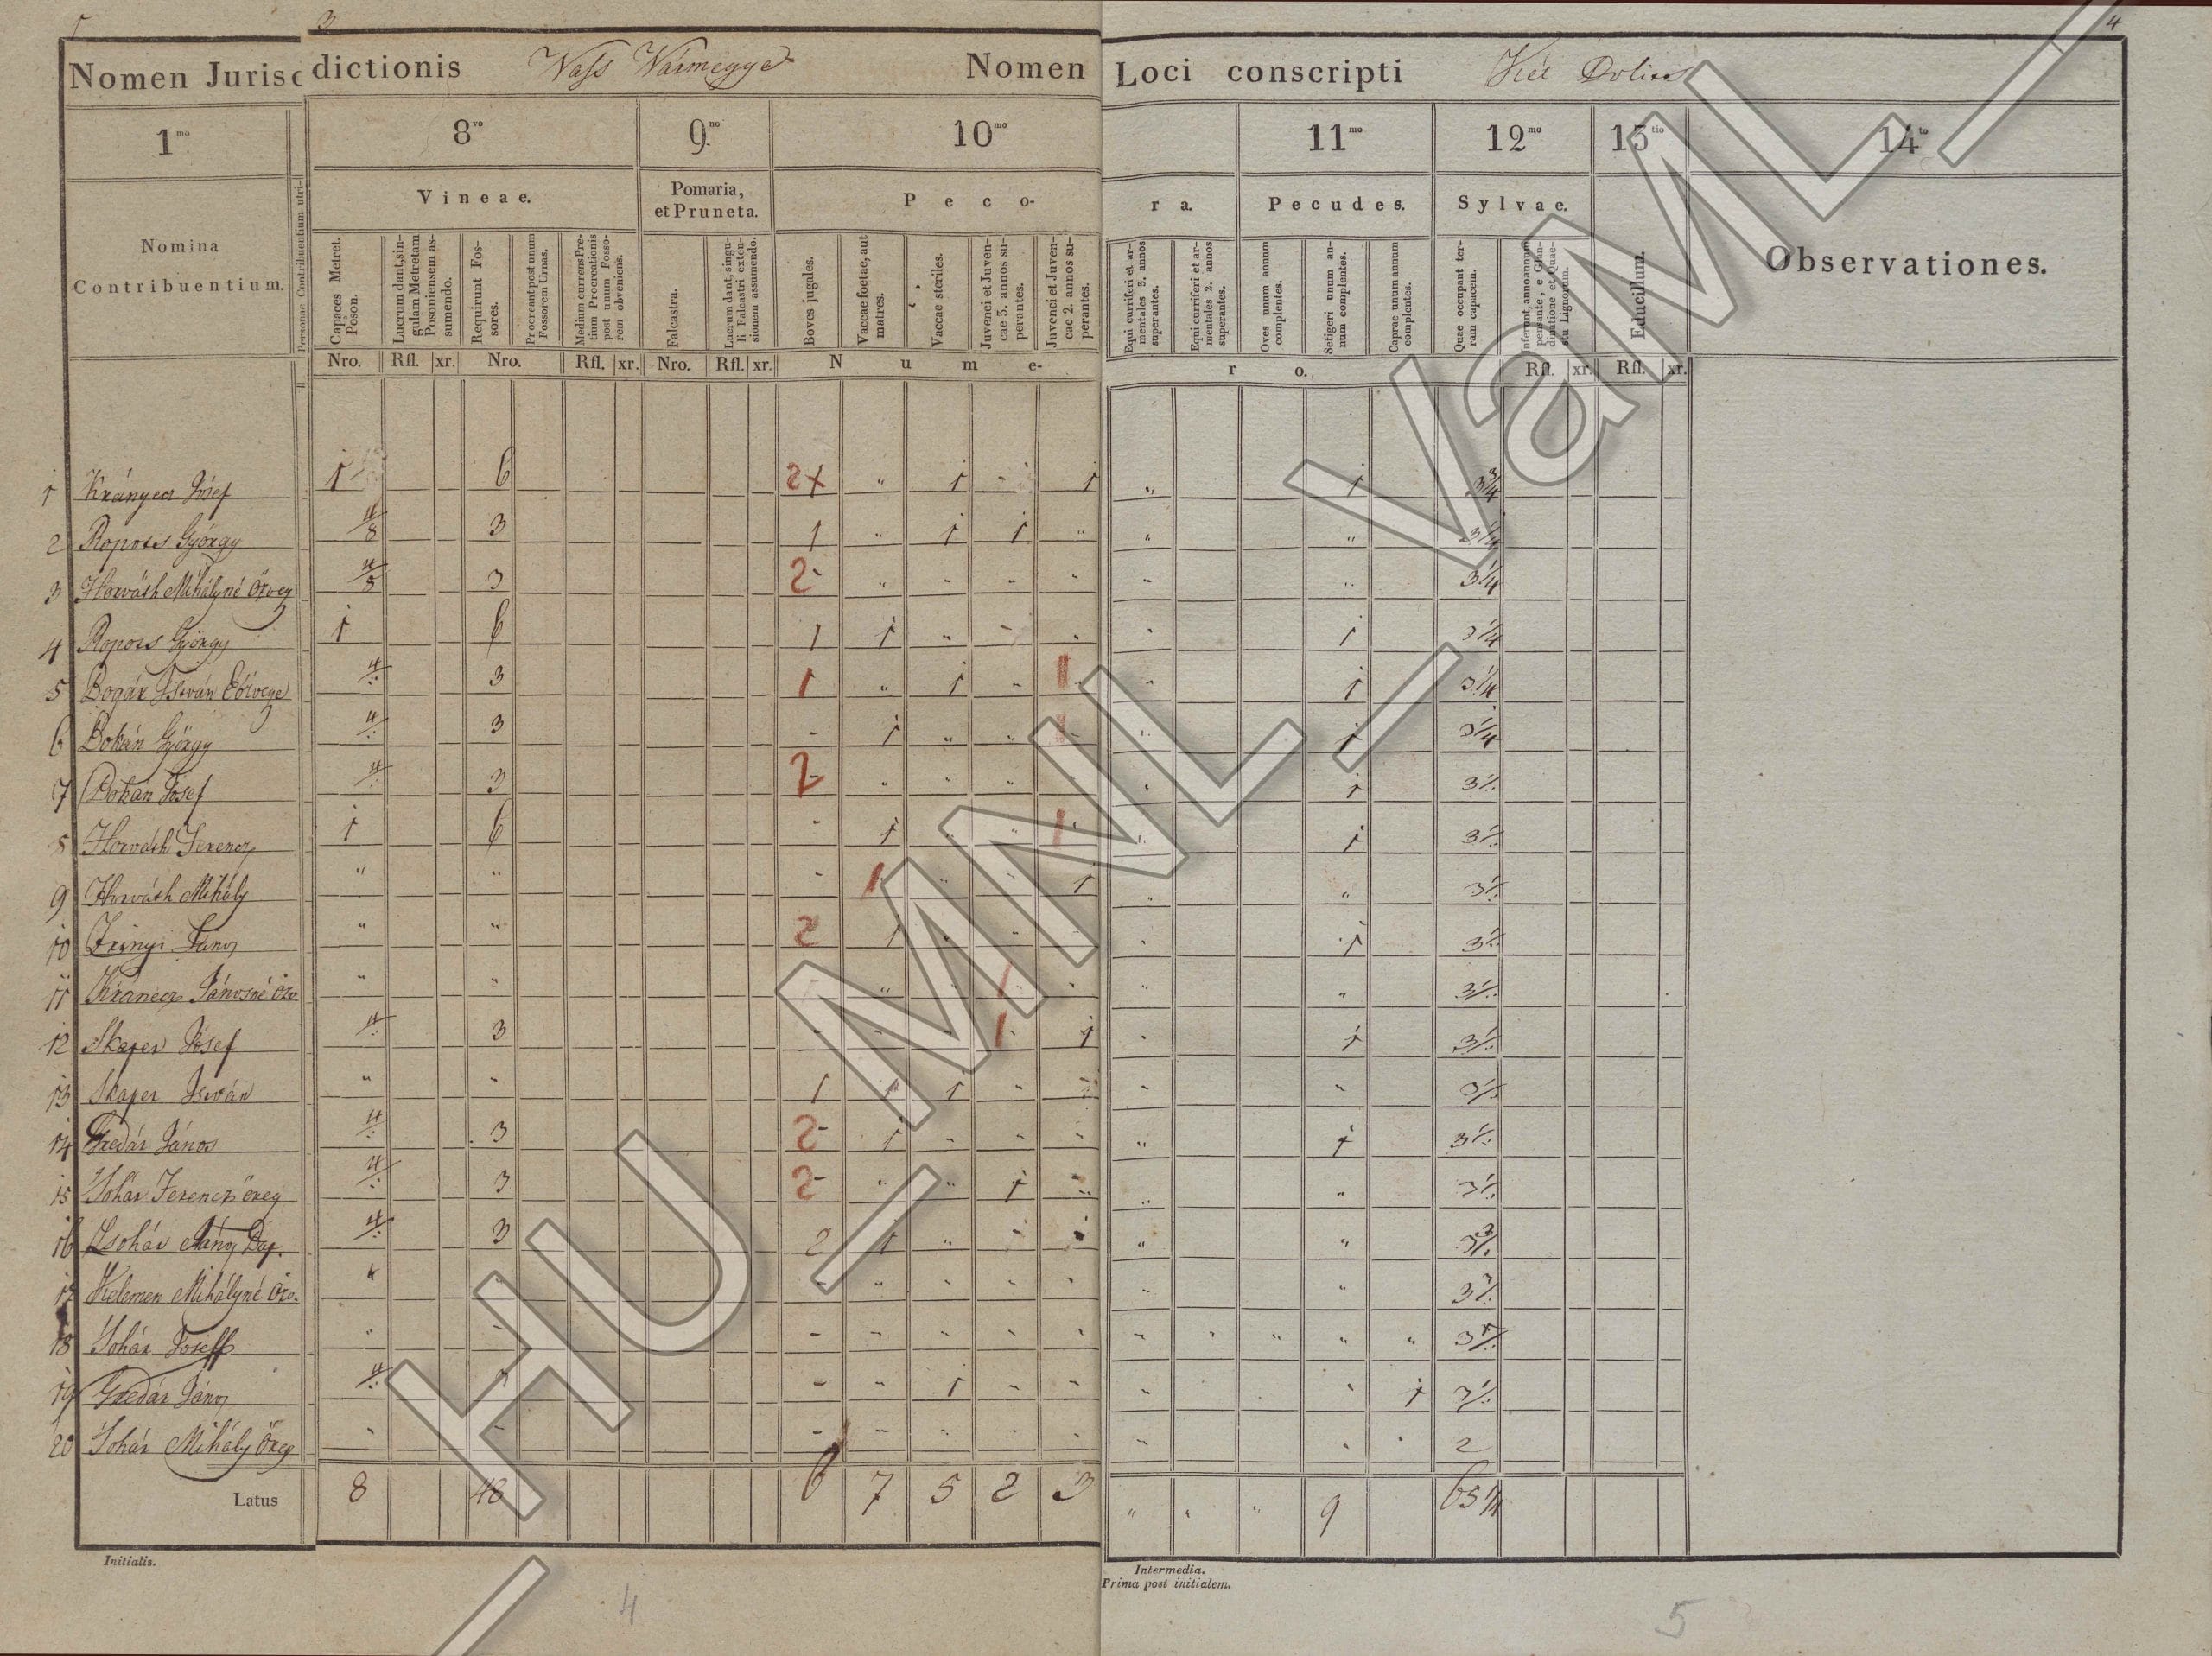 1 3 4
Nomen Jurisdictionis Vass Vármegye Nomen Loci conscripti Két Dolics
1mo 8vo 9no 10mo 11mo 12mo 13tio 14to
Nomina Contribuentium.
Personae Contribuentium utri-
Vineae. Pomaria, et Pruneta. Peco- ra. Pecudes. Sylvae. Educillum. Observationes.
Capaces Metret. Poson.
Lucrum dant, singulam Metretam Posoniensem assumendo.
Requirunt Fossores.
Procreant post unum Fossorem Urnas.
Medium currens Pretium Procreationis post unum Fossorem obveniens.
Falcastra.
Lucrum dant, singuli Falcastri extensionem assumendo.
Boves jugales.
Vaccae foetae, aut matres.
Vaccae steriles.
Juvenci et Juvencae 3. annos superantes.
Juvenci et Juvencae 2. annos superantes.
Equi curriferi et armentales 3. annos superantes.
Equi curriferi et armentales 2. annos superantes.
Oves unum annum complentes.
Setigeri unum annum complentes.
Caprae unum annum complentes.
Quae occupant terram capacem.
Nro. Rfl. xr. Nro. Rfl. xr. Nro. Rfl. xr. N u m e- r o. Rfl. xr. Rfl. xr.
1 József 1 6 2 " 1 - 1 " 1 3 3/4
2 Roposs György 4/8 3 1 " 1 1 " " " 3 1/4
3 Horváth Mihályné Özveg 4/8 3 2 " " " " " " 3 1/4
4 Roposs György 1 6 1 1 " - " " 1 3 1/4
5 Bogár István 4/: 3 1 " 1 " 1 " 1 3 1/4
6 Bokán György 4/: 3 - 1 " " 1 " 1 3 1/4
7 Bokán József 4/: 3 2 " " " " " 1 3 1/:
8 Horváth Ferencz 1 6 - 1 " " 1 " 1 3 1/:
9 Horváth Mihály " " - 1 " " 1 " " 3 1/:
10 Zrinyi János " " 2 1 " " " 1 3 1/:
11 Jánosné Özv. " " " 1 " " " 3 1/:
12 Skaper József 4/: 3 - - - 1 1 " 1 3 1/:
13 Skaper István " " 1 1 1 " " " " 3 1/:
14 János 4/: 3 2 1 " " " " 1 3 1/:
15 Sohár Ferencz öreg 4/: 3 2 " " 1 " " " 3 1/:
16 Zsohár János 4/: 3 2 1 " - " " 3 3/:
17 Kelemen Mihályné Özv. " - " " " " " " 3
18 Sohár Joseff " - - - " " " " " " " " 3
19 Gredár János 4/: 3 - " 1 - - " " 1 3 1/:
20 Sohár Mihály Öreg " - - - - - - " " " 2
Latus 8 48 6 7 5 2 3 " " " 9 65 1/4
Initialis.
Intermedia.
Prima post initialem.
4 5
HU_MNL_VaML_